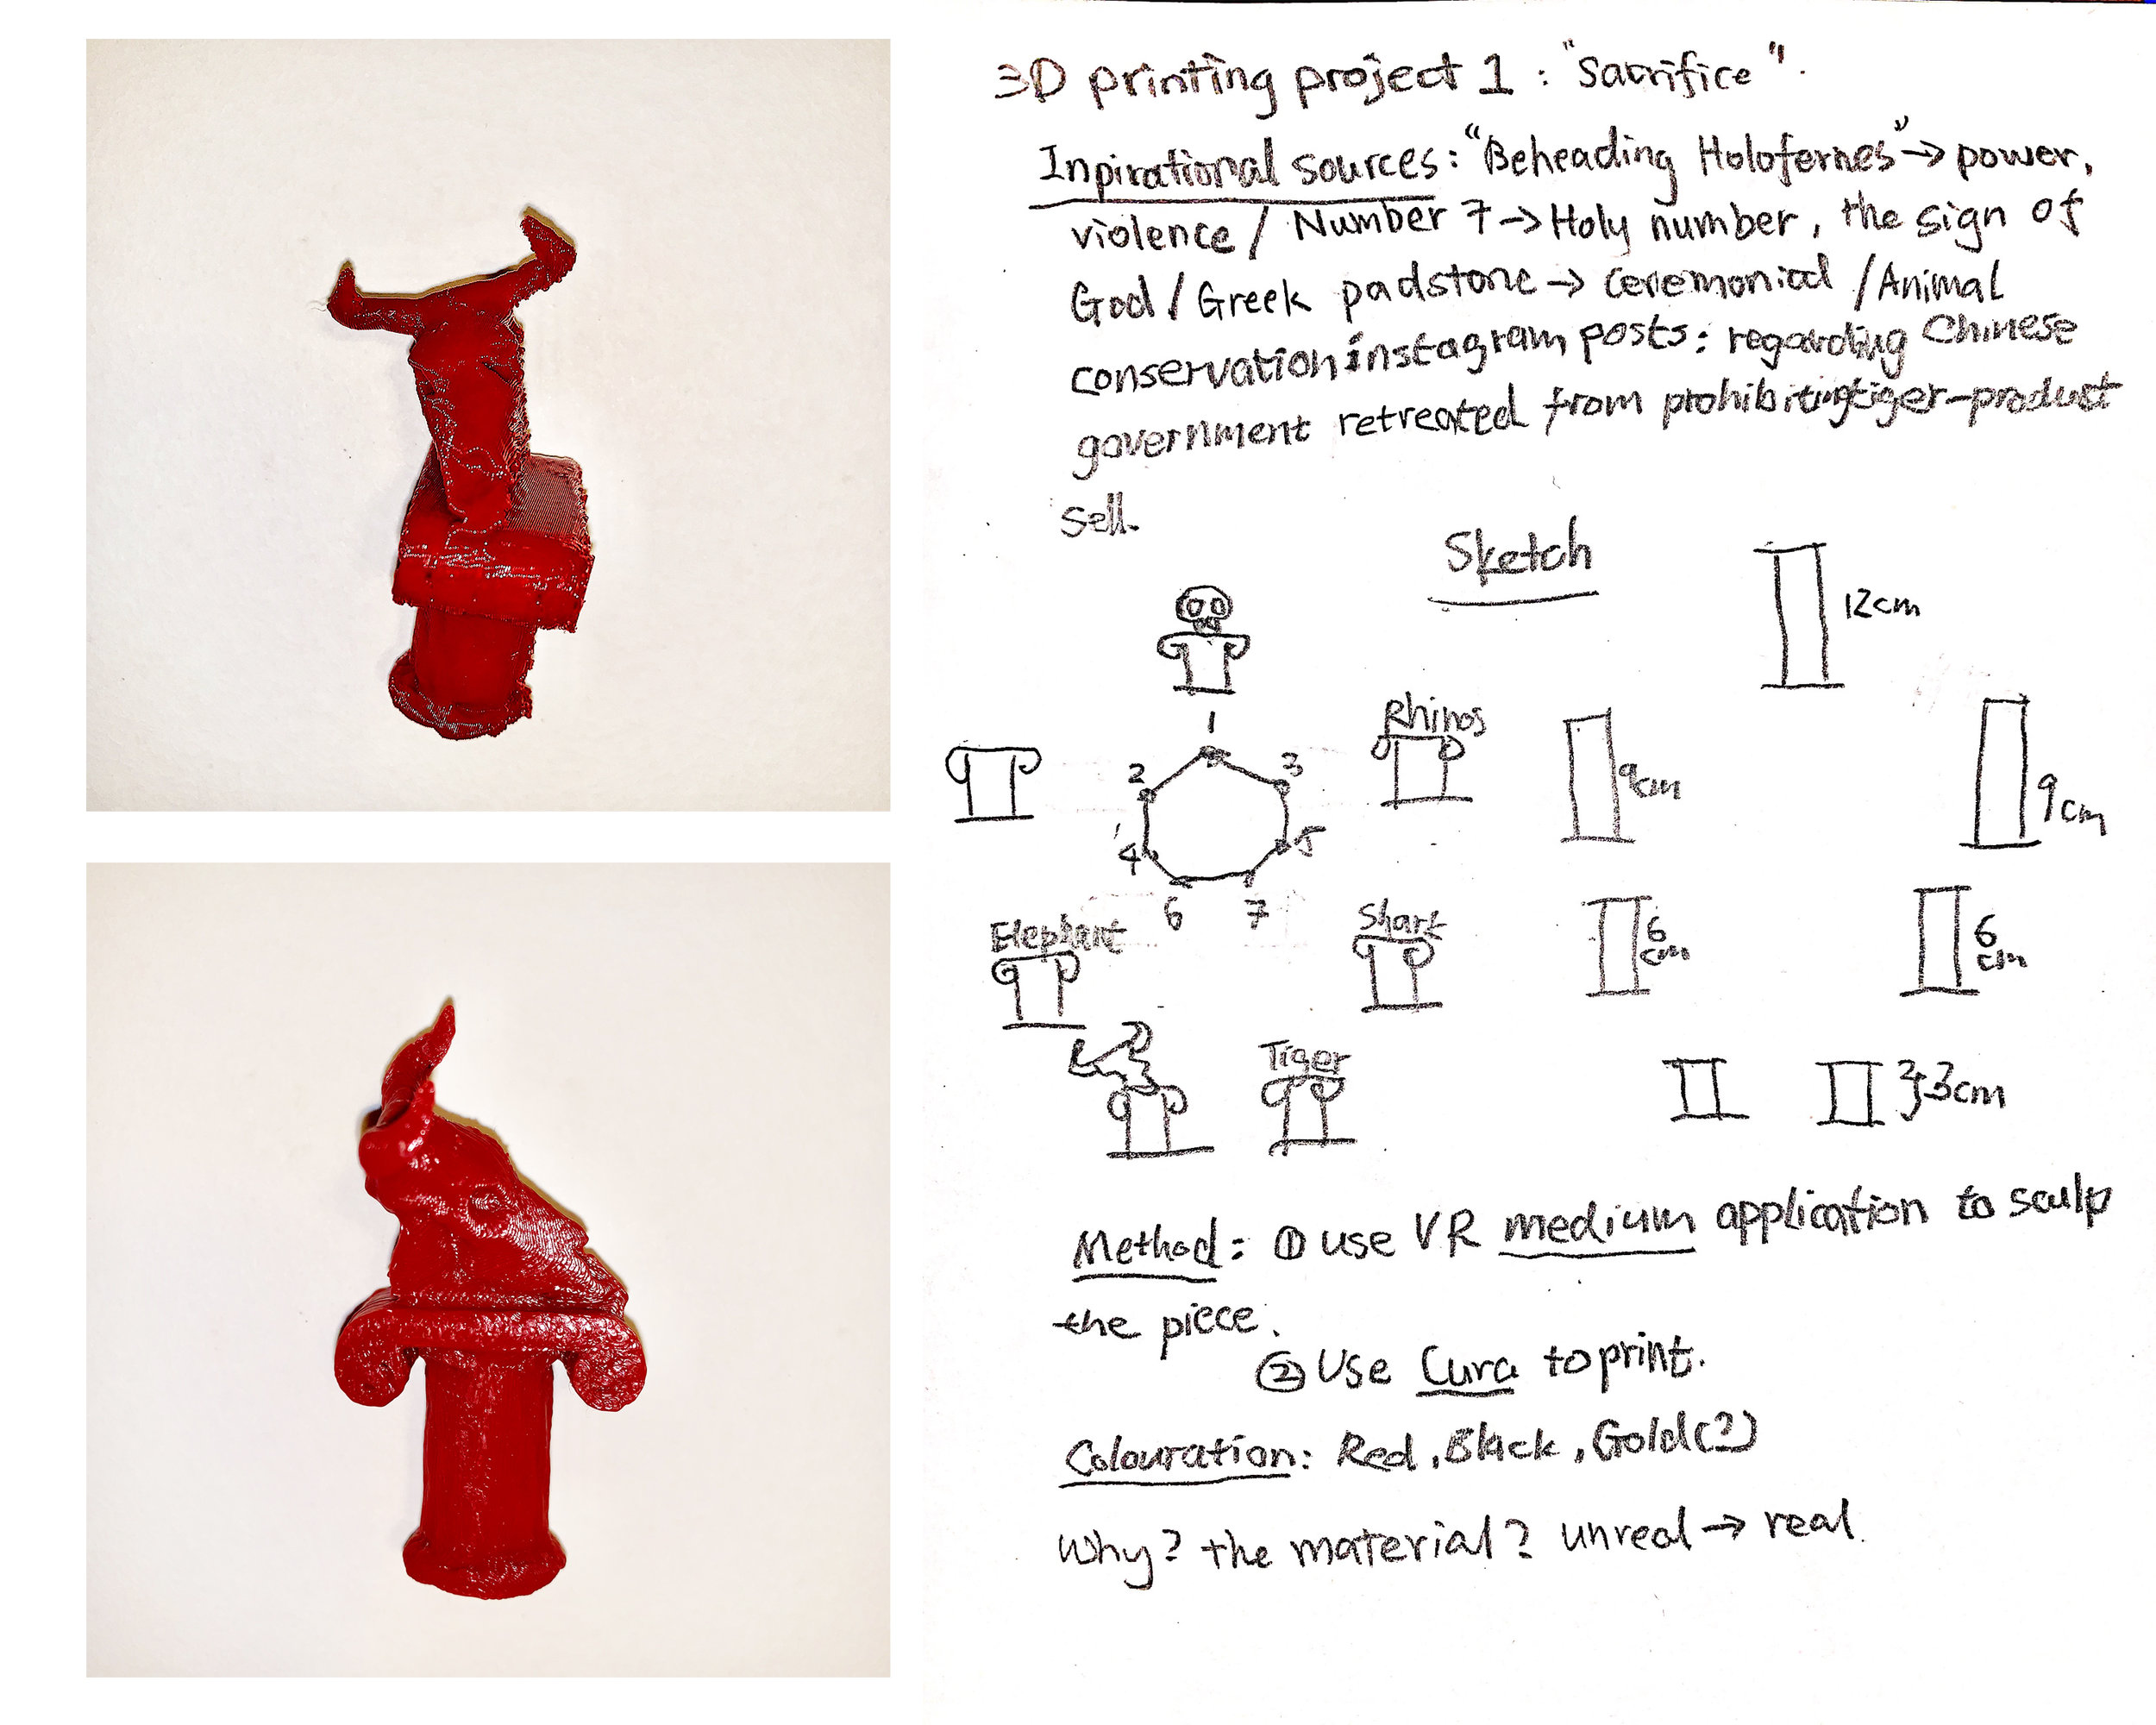 3D printing project 1 : "Sacrifice".
Inpirational sources: "Beheading Holofernes" → power,
violence / Number 7 → Holy number, the sign of
God / Greek padstone → ceremonial / Animal
conservation instagram posts: regarding Chinese
government retreated from prohibiting tiger-product
sell.
Sketch
12cm
1
Rhinos
2
3
9cm
9cm
4
5
6
7
Elephant
Shark
6
cm
6
cm
Tiger
3cm
Method: ① use VR medium application to sculp
the piece.
② Use Cura to print.
Colouration: Red, Black, Gold(?)
Why? the material? unreal → real.